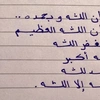 ن الله و بحمده ..
ن الله العظيم
فر الله
ه أكبر
د لله
ه إلا الله.